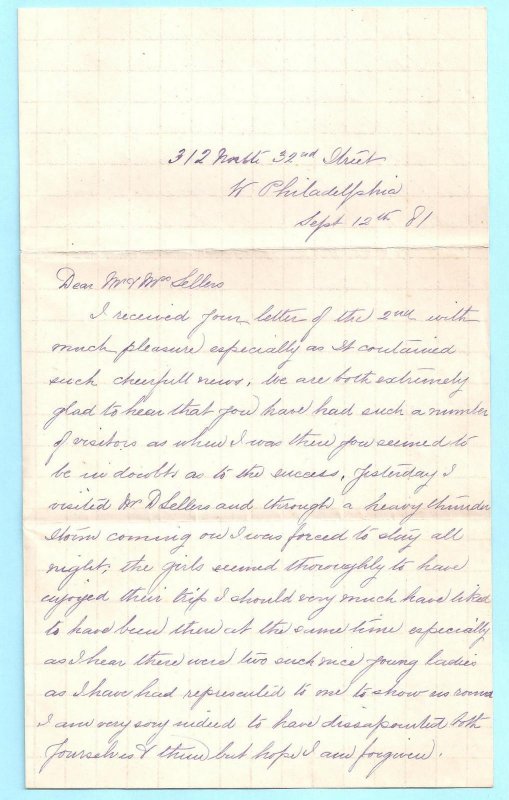 312 North 32nd Street
W Philadelphia
Sept 12th 81
Dear Mr & Mrs Sellers
I received your letter of the 2nd with
much pleasure especially as it contained
such cheerfull news, we are both extremely
glad to hear that you have had such a number
of visitors as when I was there you seemed to
be in doubts as to the success, Yesterday I
visited Mr D Sellers and through a heavy thunder
storm coming on I was forced to stay all
night; the girls seemed thoroughly to have
enjoyed their trip I should very much have liked
to have been there at the same time especially
as I hear there were two such nice young ladies
as I have had represented to me to show us round
I am very sory indeed to have dissapointed both
yourselves & them but hope I am forgiven.